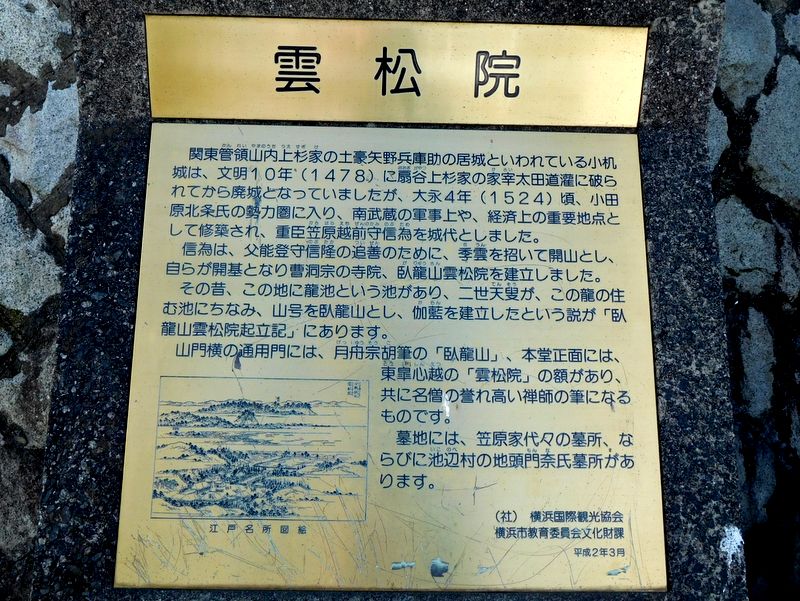 雲松院
関東管領山内上杉家の土豪矢野兵庫助の居城といわれている小机
城は、文明10年（1478）に扇谷上杉家の家宰太田道灌に破ら
れてから廃城となっていましたが、大永4年（1524）頃、小田
原北条氏の勢力圏に入り、南武蔵の軍事上や、経済上の重要地点と
して修築され、重臣笠原越前守信為を城代としました。
信為は、父能登守信隆の追善のために、季雲を招いて開山とし、
自らが開基となり曹洞宗の寺院、臥龍山雲松院を建立しました。
その昔、この地に龍池という池があり、二世天叟が、この龍の住
む池にちなみ、山号を臥龍山とし、伽藍を建立したという説が「臥
龍山雲松院起立記」にあります。
山門横の通用門には、月舟宗胡筆の「臥龍山」、本堂正面には、
東皐心越の「雲松院」の額があり、
共に名僧の誉れ高い禅師の筆になる
ものです。
墓地には、笠原家代々の墓所、な
らびに池辺村の地頭門奈氏墓所があ
ります。
江戸名所図絵
（社）　横浜国際観光協会
横浜市教育委員会文化財課
平成2年3月